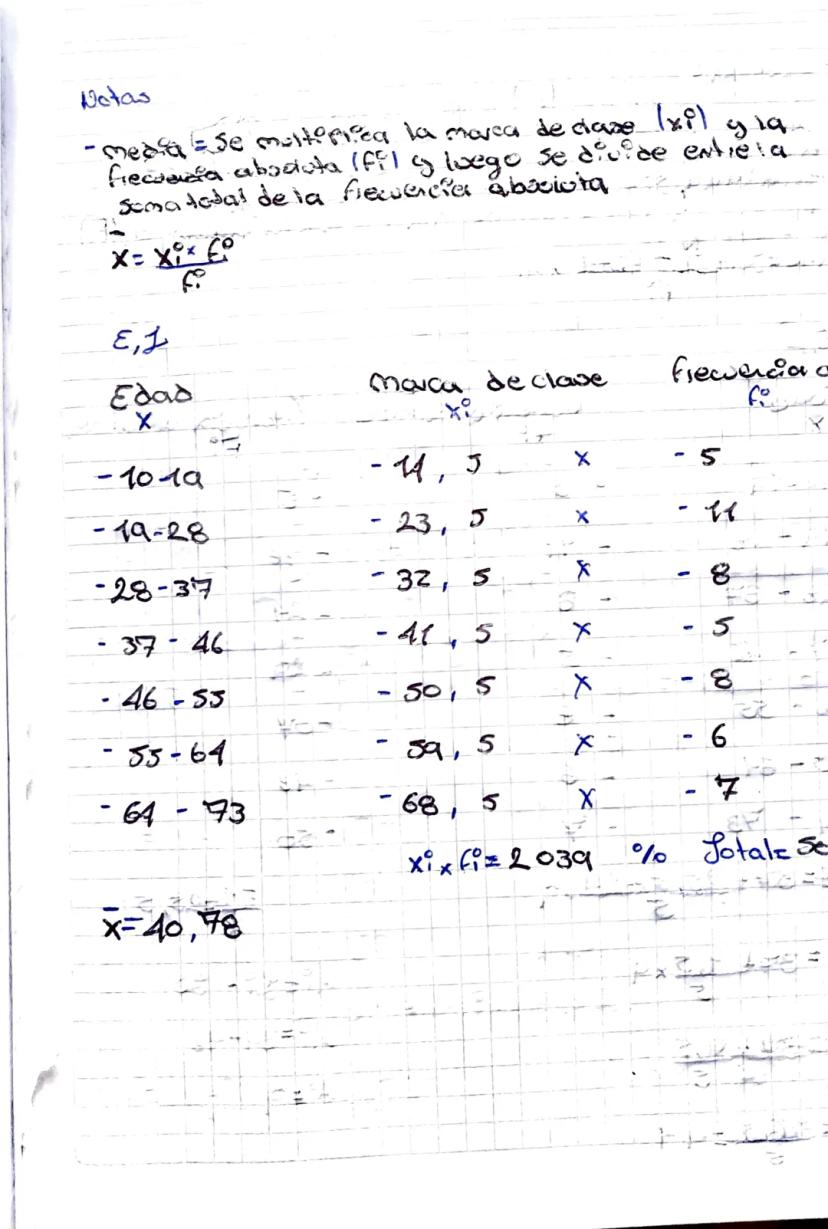 Notas
- media = se multiplica la marca de clase (xi) y la
frecuencia absoluta (fi) y luego se divide entre la
suma total de la frecuencia absoluta
x̄ = xi × fi
fi
EJ
Edad Marca de clase frecuencia a
x xi fi
- 10-19 - 14,5 × - 5
- 19-28 - 23,5 × - 11
- 28-37 - 32,5 × - 8
- 37-46 - 41,5 × - 5
- 46-55 - 50,5 × - 8
- 55-64 - 59,5 × - 6
- 64-73 - 68,5 × - 7
xi × fi = 2039 % Total = 50
x̄ = 40,78